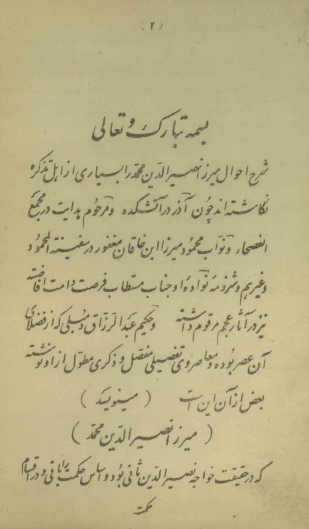 ( ۲ )
بسمه تبارک و تعالی
شرح احوال میرزا نصیرالدین محمد را بسیاری از اهل تذکره
نگاشته اند چون آذر در آتشکده و مرحوم هدایت در مجمع
الفصحاء و نواب محمود میرزا ابن خاقان مغفور در سفینة المحمود
و غیرهم و شرذمه نواده او جناب مستطاب فرصت دامت افاضته
نیز در آثار عجم مرقوم داشته و حکیم عبدالرزاق دنبلی که از فضلای
آن عصر بوده و معاصر وی تفصیلی مفصل و ذکری مطول از او نوشته
بعض از آن این است ( مینویسد )
( میرزا نصیرالدین محمد )
که در حقیقت خواجه نصیرالدین ثانی بود و اساس حکمت را بانی و در اقسام
حکمت